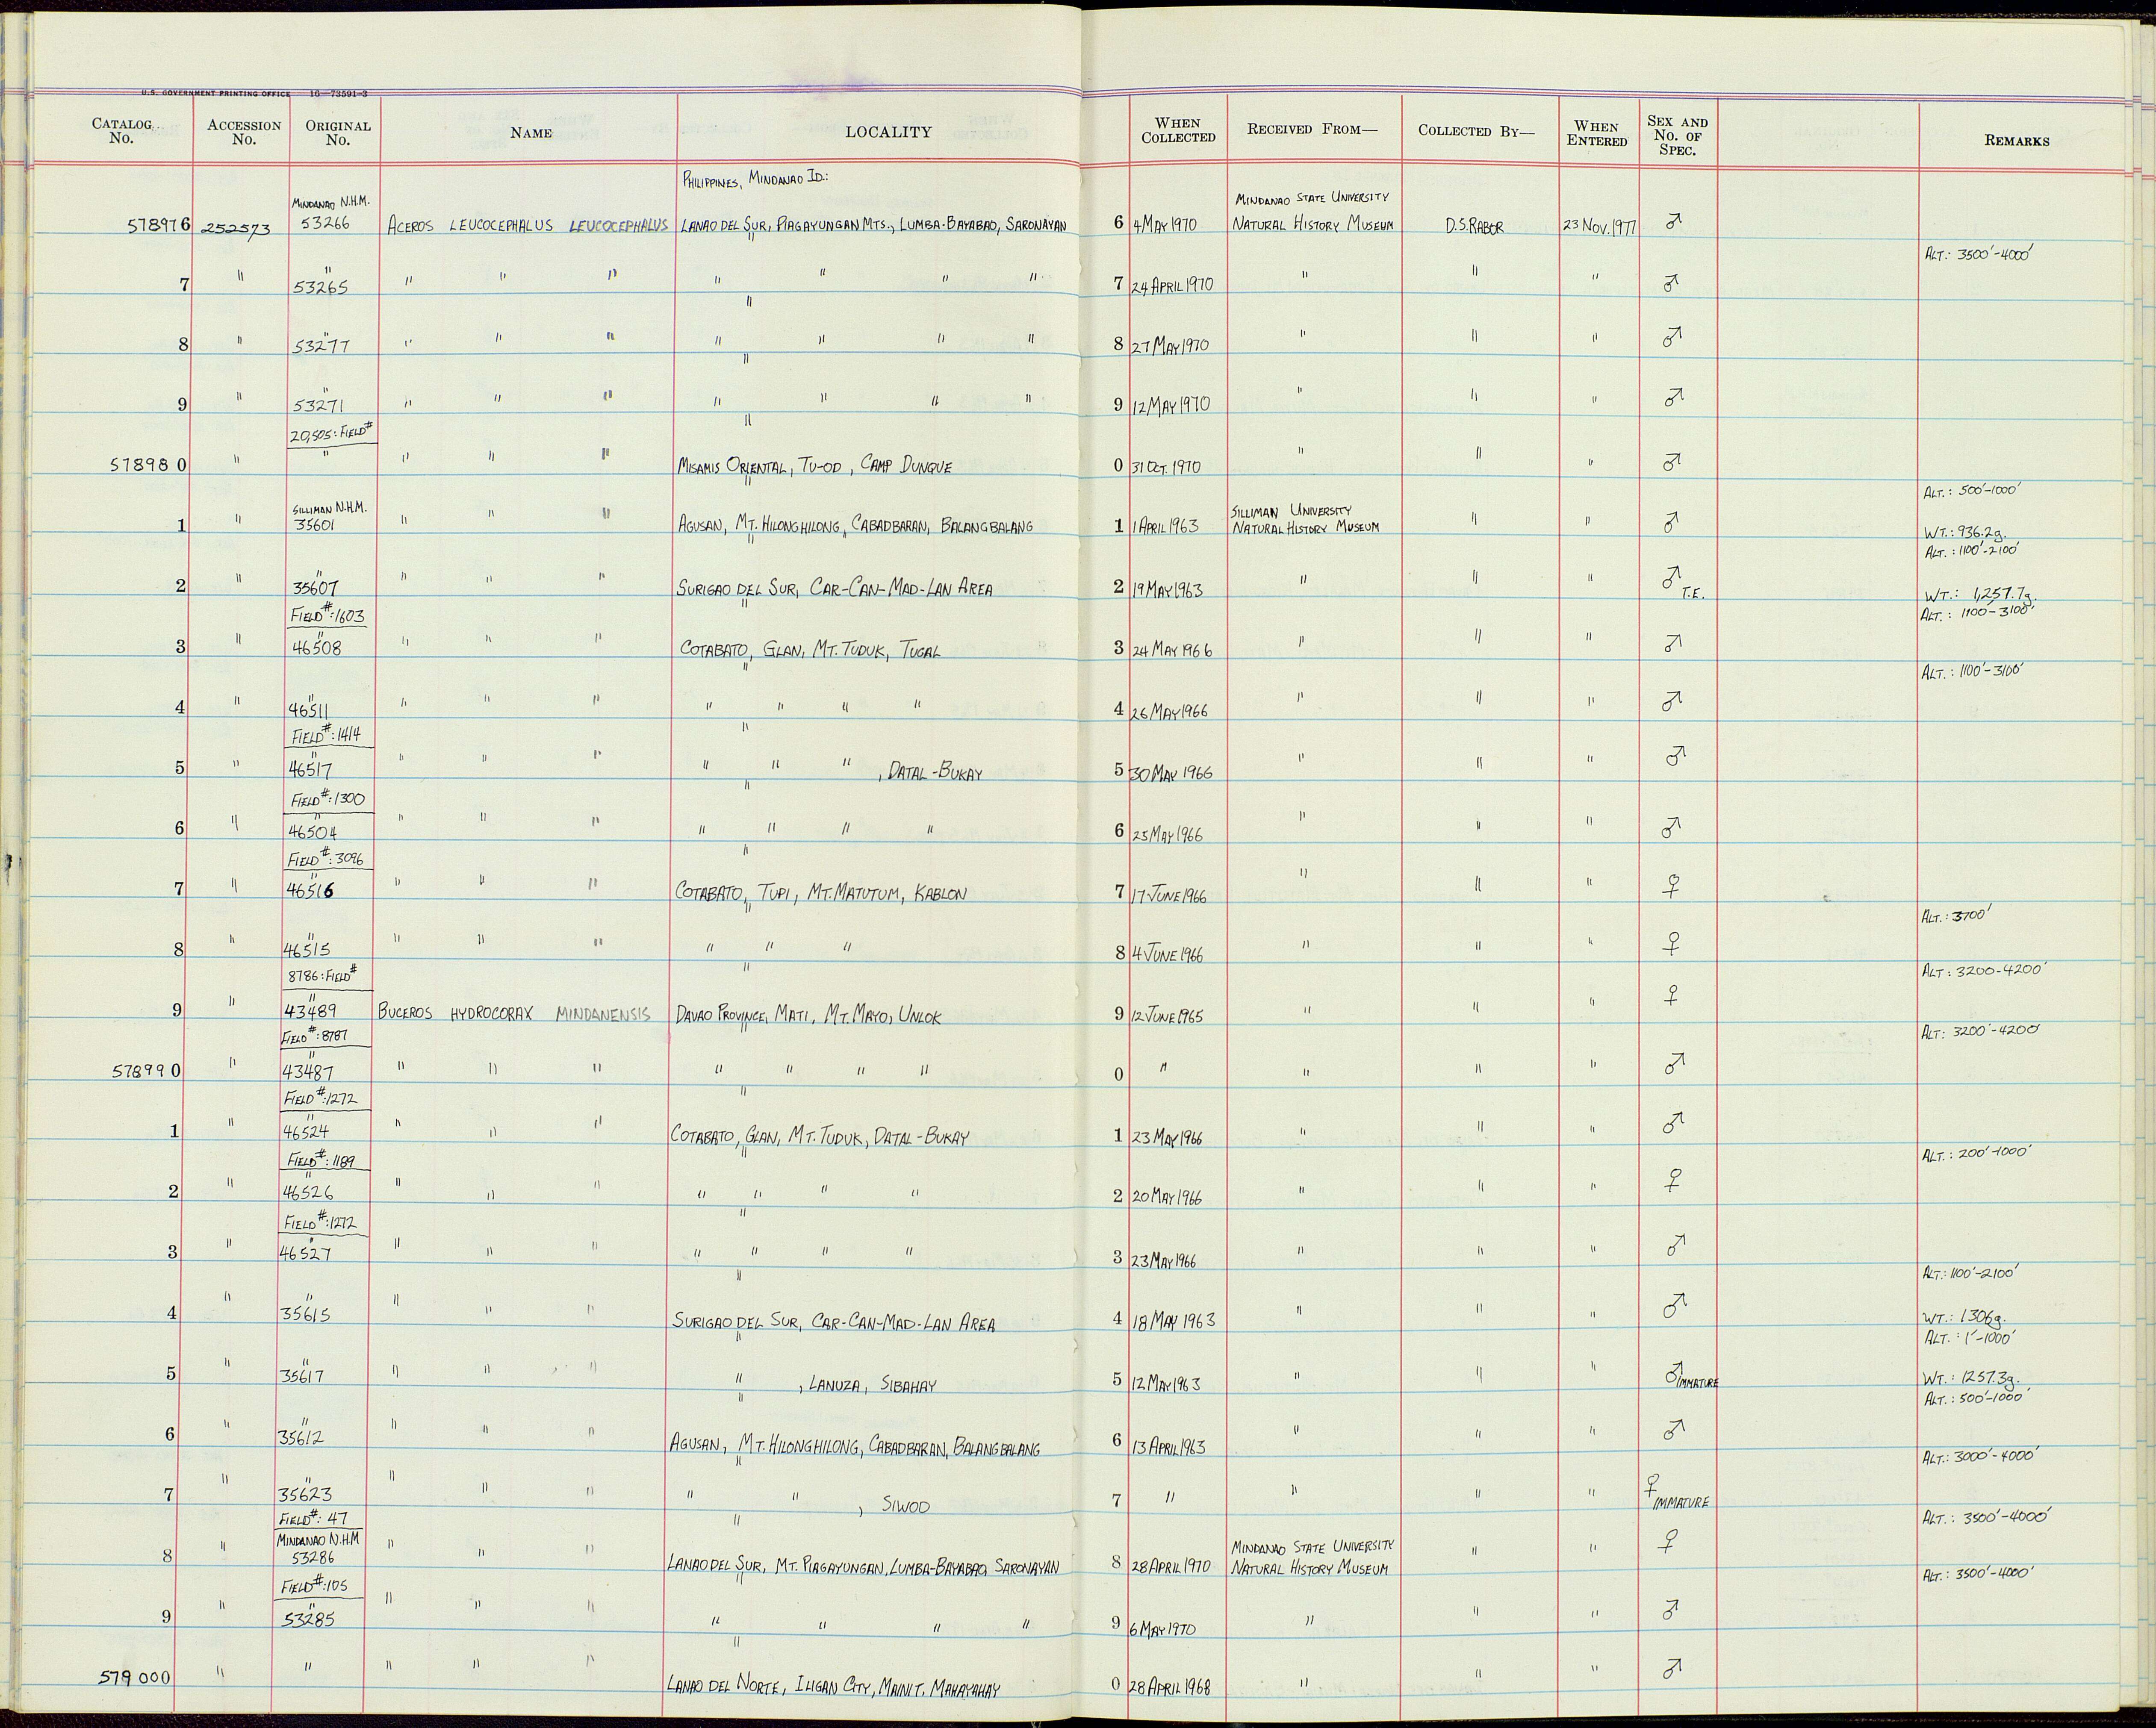 U.S. GOVERNMENT PRINTING OFFICE 16—73591-3
CATALOG No. ACCESSION No. ORIGINAL No. NAME LOCALITY WHEN COLLECTED RECEIVED FROM— COLLECTED BY— WHEN ENTERED SEX AND No. OF SPEC. REMARKS
PHILIPPINES, MINDANAO ID.:
MINDANAO N.H.M. MINDANAO STATE UNIVERSITY
578976 252573 53266 ACEROS LEUCOCEPHALUS LEUCOCEPHALUS LANAO DEL SUR, PIAGAYUNGAN MTS., LUMBA-BAYABAO, SARONAYAN 6 4 MAY 1970 NATURAL HISTORY MUSEUM D.S. RABOR 23 NOV. 1977 ♂
" ALT.: 3500'-4000'
7 " " 53265 " " " " " " " 7 24 APRIL 1970 " " " ♂
"
8 " " 53277 " " " " " " " 8 27 MAY 1970 " " " ♂
"
9 " " 53271 " " " " " " " 9 12 MAY 1970 " " " ♂
20,505: FIELD# "
578980 " " " " " MISAMIS ORIENTAL, TU-OD, CAMP DUNQUE 0 31 OCT. 1970 " " " ♂
" ALT.: 500'-1000'
SILLIMAN N.H.M. SILLIMAN UNIVERSITY
1 " 35601 " " " AGUSAN, MT. HILONGHILONG, CABADBARAN, BALANGBALANG 1 1 APRIL 1963 NATURAL HISTORY MUSEUM " " ♂ WT.: 936.2g.
" ALT.: 1100'-2100'
2 " " 35607 " " " SURIGAO DEL SUR, CAR-CAN-MAD-LAN AREA 2 19 MAY 1963 " " " ♂ T.E. WT.: 1,257.7g.
FIELD#: 1603 " ALT.: 1100'-3100'
3 " " 46508 " " " COTABATO, GLAN, MT. TUDUK, TUGAL 3 24 MAY 1966 " " " ♂
" ALT.: 1100'-3100'
4 " " 46511 " " " " " " " 4 26 MAY 1966 " " " ♂
FIELD#: 1414 "
5 " " 46517 " " " " " " , DATAL-BUKAY 5 30 MAY 1966 " " " ♂
FIELD#: 1300 "
6 " " 46504 " " " " " " " 6 25 MAY 1966 " " " ♂
FIELD#: 3096 "
7 " " 46516 " " " COTABATO, TUPI, MT. MATUTUM, KABLON 7 17 JUNE 1966 " " " ♀
" ALT.: 3700'
8 " " 46515 " " " " " " 8 4 JUNE 1966 " " " ♀
8786: FIELD# " ALT.: 3200-4200'
9 " " 43489 BUCEROS HYDROCORAX MINDANENSIS DAVAO PROVINCE, MATI, MT. MAYO, UNLOK 9 12 JUNE 1965 " " " ♀
FIELD#: 8787 " ALT.: 3200'-4200'
578990 " " 43487 " " " " " " " 0 " " " " ♂
FIELD#: 1272 "
1 " " 46524 " " " COTABATO, GLAN, MT. TUDUK, DATAL-BUKAY 1 23 MAY 1966 " " " ♂
FIELD#: 1189 " ALT.: 200'-1000'
2 " " 46526 " " " " " " " 2 20 MAY 1966 " " " ♀
FIELD#: 1272 "
3 " " 46527 " " " " " " " 3 23 MAY 1966 " " " ♂
" ALT.: 1100'-2100'
4 " " 35615 " " " SURIGAO DEL SUR, CAR-CAN-MAD-LAN AREA 4 18 MAY 1963 " " " ♂ WT.: 1306g.
" ALT.: 1'-1000'
5 " " 35617 " " " " , LANUZA, SIBAHAY 5 12 MAY 1963 " " " ♂ IMMATURE WT.: 1257.3g.
" ALT.: 500'-1000'
6 " " 35612 " " " AGUSAN, MT. HILONGHILONG, CABADBARAN, BALANGBALANG 6 13 APRIL 1963 " " " ♂
" ALT.: 3000'-4000'
7 " " 35623 " " " " " , SIWOD 7 " " " " ♀ IMMATURE
FIELD#: 47 " ALT.: 3500'-4000'
MINDANAO N.H.M MINDANAO STATE UNIVERSITY
8 " 53286 " " " LANAO DEL SUR, MT. PIAGAYUNGAN, LUMBA-BAYABAO, SARONAYAN 8 28 APRIL 1970 NATURAL HISTORY MUSEUM " " ♀
FIELD#: 105 " ALT.: 3500'-4000'
9 " " 53285 " " " " " " " 9 6 MAY 1970 " " " ♂
"
579000 " " " " " LANAO DEL NORTE, ILIGAN CITY, MAINIT, MAHAYAHAY 0 28 APRIL 1968 " " " ♂